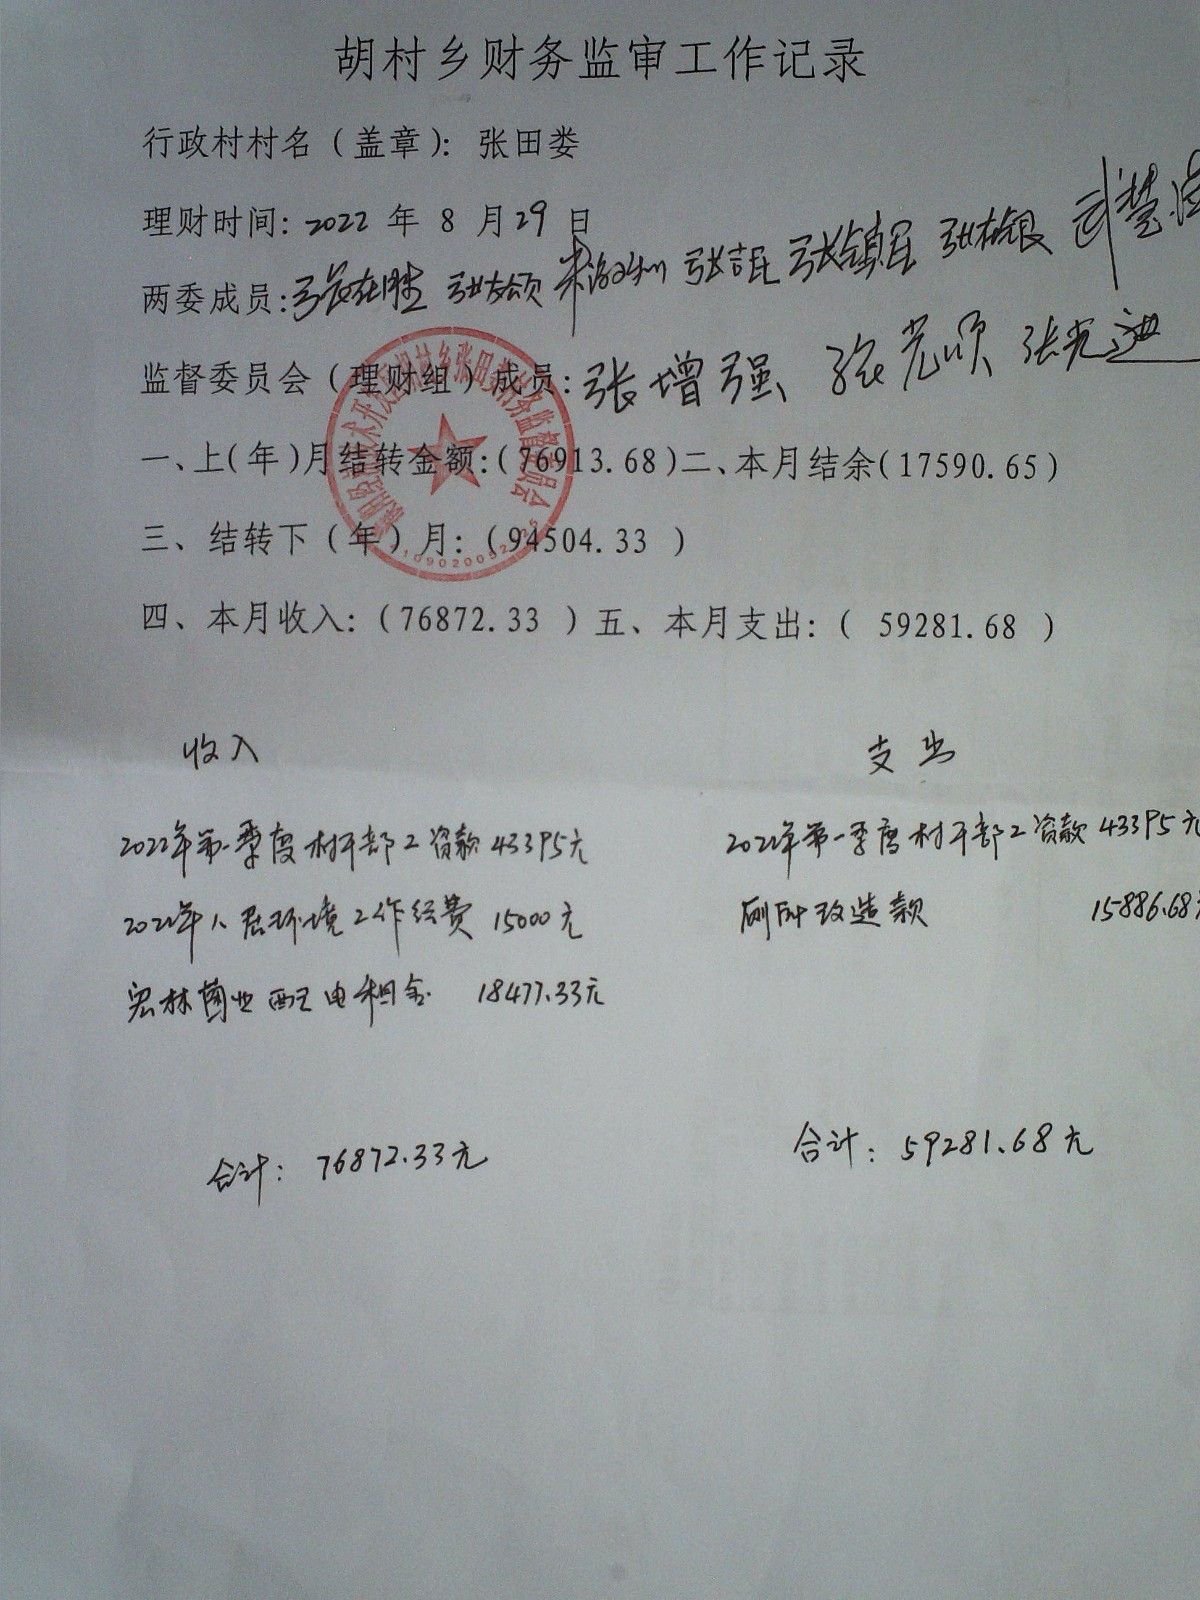 胡村乡财务监审工作记录
行政村村名（盖章）：张田娄
理财时间：2022 年 8 月29 日
两委成员：张在胜 张友领 张吉民 张镇民 张桂银
监督委员会（理财组）成员：张增强 张光顺 张光迎
一、上(年)月结转金额:(76913.68)二、本月结余(17590.65)
三、结转下（年）月:(94504.33 )
四、本月收入:(76872.33 )五、本月支出:( 59281.68 )
收入 支出
2022年第一季度村干部工资款 43395元 2022年第一季度村干部工资款 43395元
2022年人居环境工作经费 15000元 厕所改造款 15886.68
宏林菌业配电租金 18477.33元
合计：76872.33元 合计：59281.68元